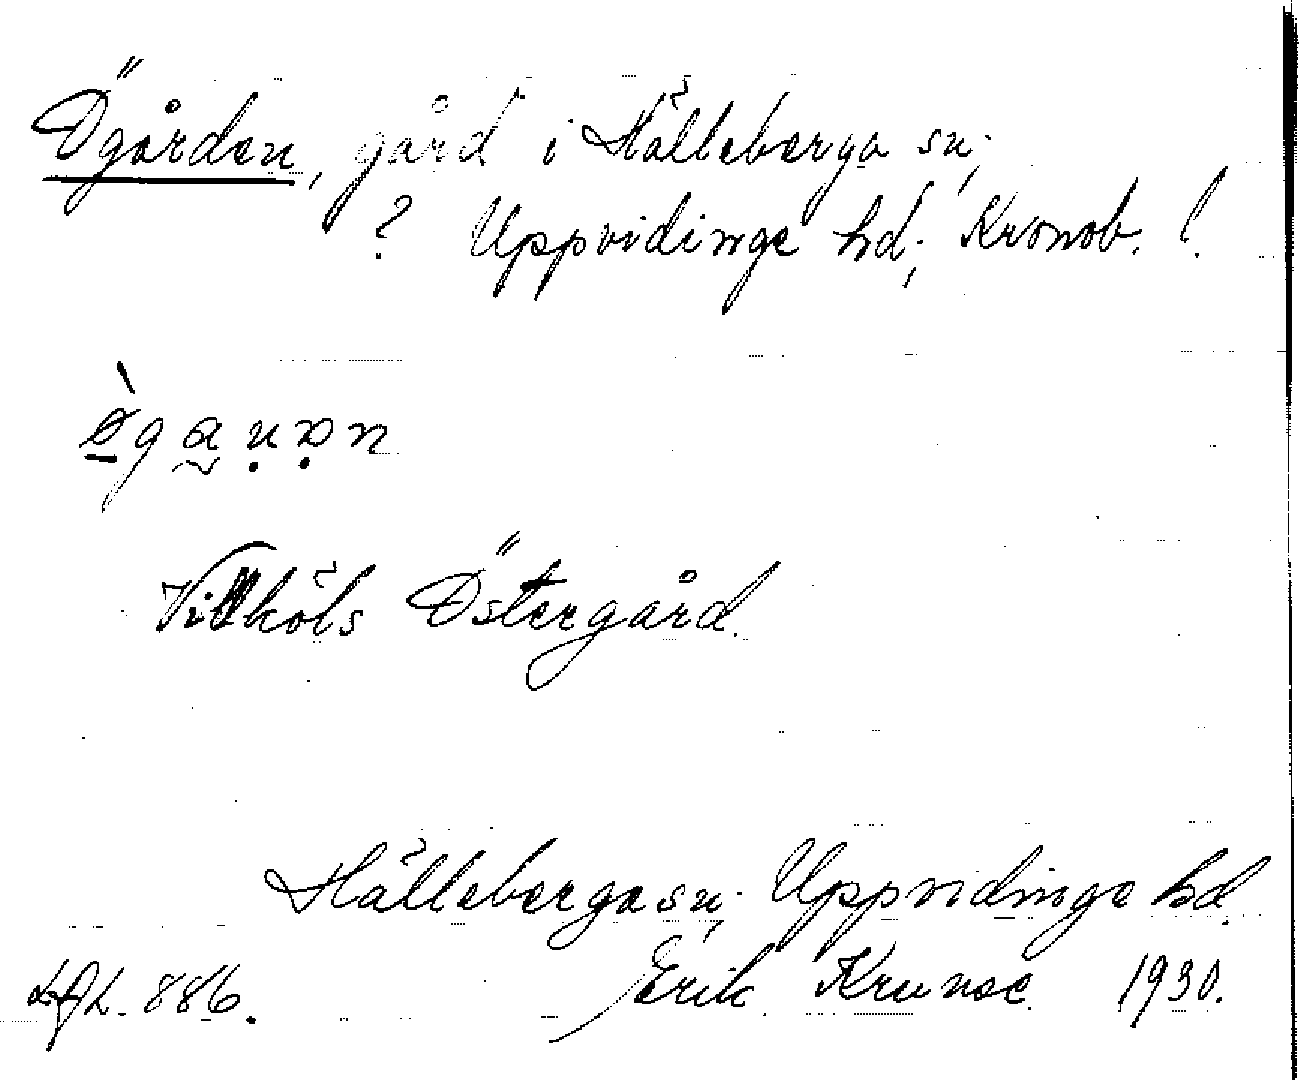 Ögården, gård i Hälleberga sn;
? Uppvidinge hd; Kronob. l.
Östergård.
Hälleberga sn; Uppvidinge hd.
Erik Krunse 1930.
LAL. 886.